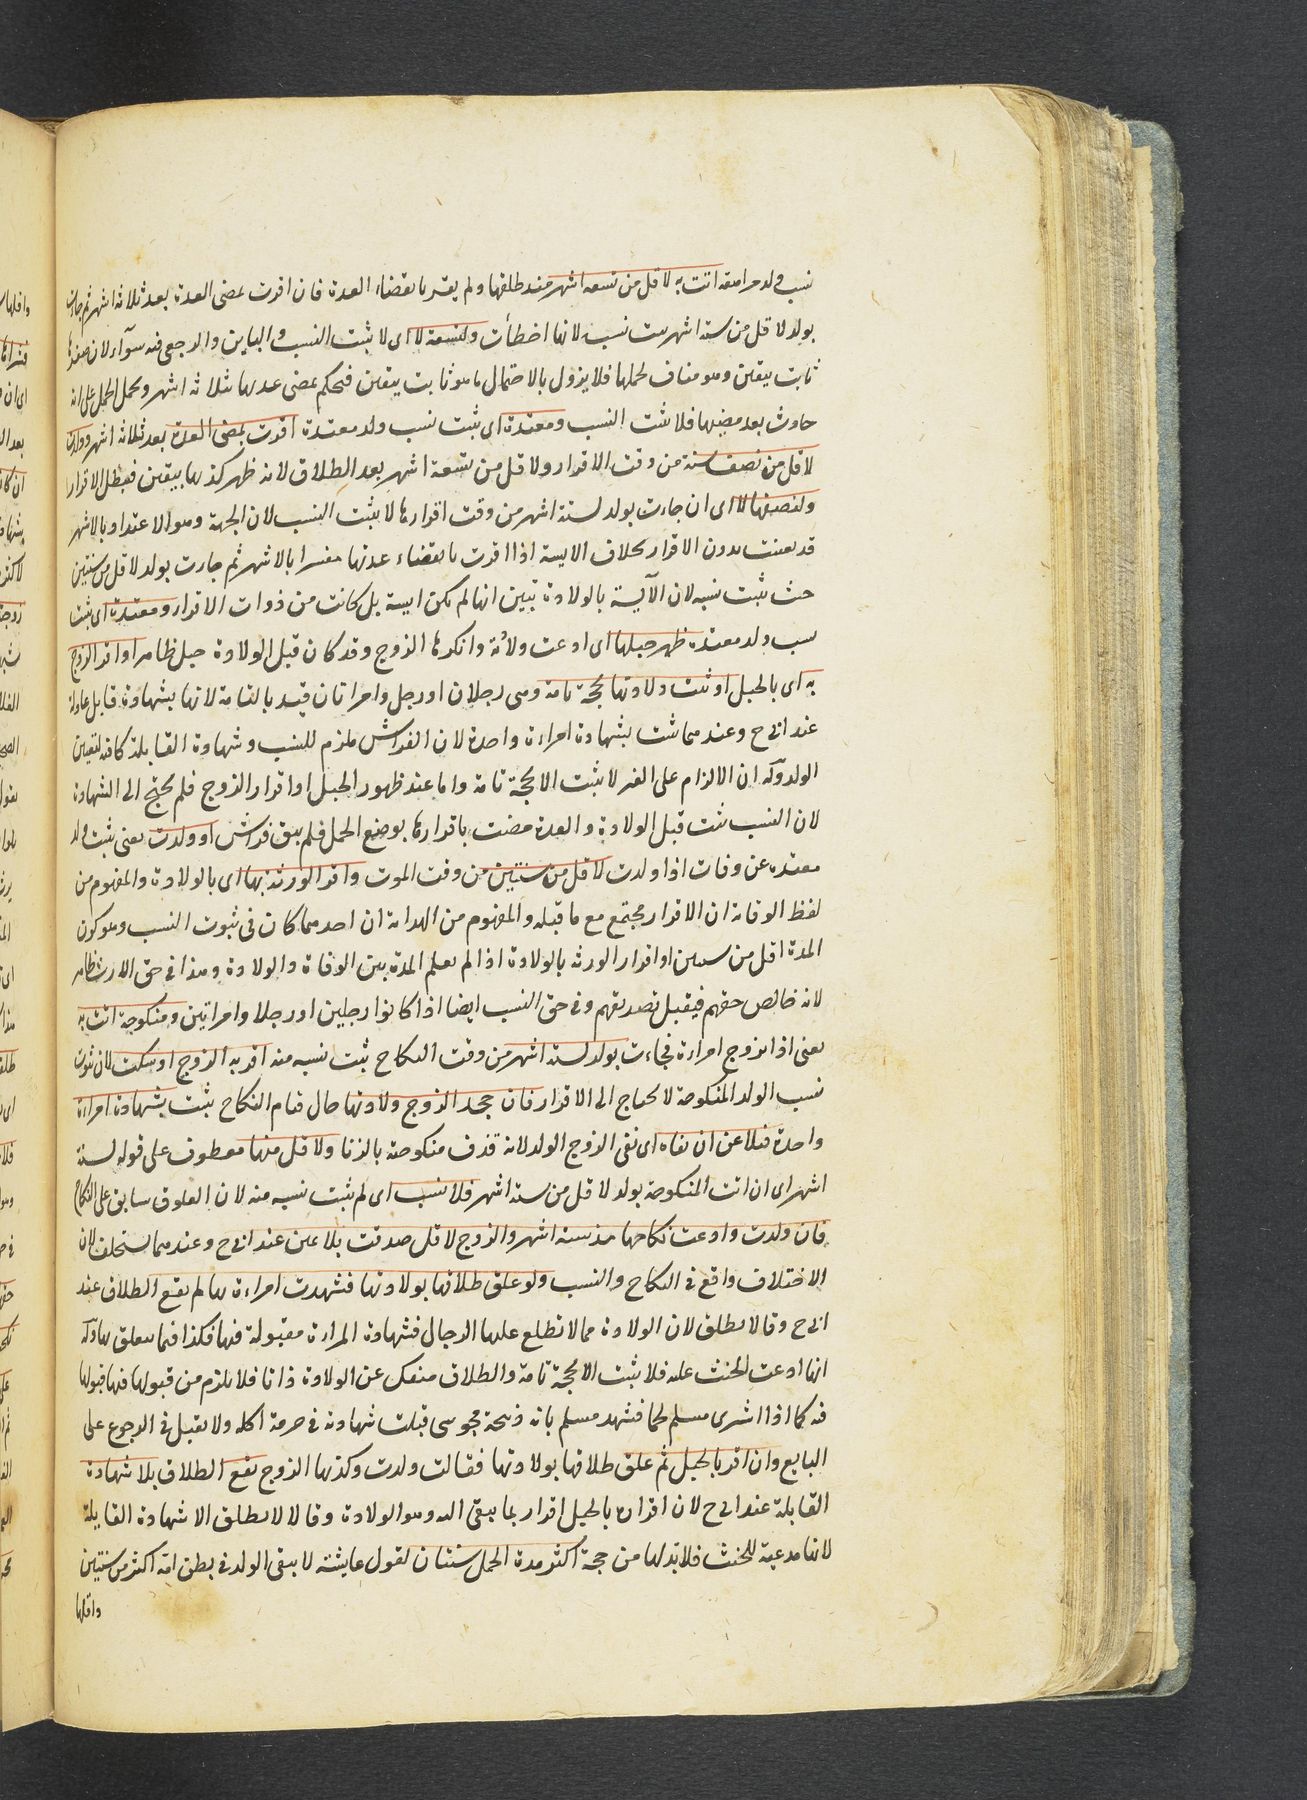 نسب ولد مراهقة اتت به لاقل من تسعة اشهر منذ طلقها ولم يقر بانقضاء العدة فان اقرت بمضى العدة بعد ثلاثة اشهر ثم جاءت
بولد لاقل من ستة اشهر يثبت نسبه لانها اخطأت ولتسعة لا اى لا يثبت النسب والباين والرجعى فيه سوآء لان صغرها
ثابت بيقين وهو مناف لحملها فلا يزول بالاحتمال ما هو ثابت بيقين فيحكم بمضى عدتها بثلاثة اشهر ويحمل الحمل على انه
حادث بعد مضيها فلا يثبت النسب ومعتدة اى يثبت نسب ولد معتدة اقرت بمضى العدة بعد ثلاثة اشهر وولدت
لاقل من نصف سنة من وقت الاقرار ولاقل من تسعة اشهر بعد الطلاق لانه ظهر كذبها بيقين فبطل الاقرار
ولنصفها لا اى ان جاءت بولد لستة اشهر من وقت اقرارها لا يثبت النسب لان الجهة وهو الاعتداد بالاشهر
قد تعينت بدون الاقرار بخلاف الايسة اذا اقرت بانقضاء عدتها مفسرا بالاشهر ثم جاءت بولد لاقل من سنتين
حيث يثبت نسبه لان الآيسة بالولادة تبين انها لم تكن ايسة بل كانت من ذوات الاقراء ومعتدة اى يثبت
نسب ولد معتدة ظهر حبلها اى ادعت ولادته وانكرها الزوج وقد كان قبل الولادة حبل ظاهر او اقر الزوج
به اى بالحبل او ثبت ولادتها بحجة تامة وهى رجلان او رجل وامراتان قيد بالتامة لانها بشهادة قابلة عادلة
عند ابى ح وعندهما يثبت بشهادة امراءة واحدة لان الفراش ملزم للنسب وشهادة القابلة كافية لتعيين
الولد وله ان الالزام على الغير لا يثبت الا بحجة تامة واما عند ظهور الحبل او اقرار الزوج فلم يحتج الى الشهادة
لان النسب يثبت قبل الولادة والعدة مضت باقرارها بوضع الحمل فلم يبق فراش او ولدت يعنى يثبت ولد
معتدة عن وفات اذا ولدت لاقل من سنتين من وقت الموت واقر الورثة بها اى بالولادة والمفهوم من
لفظ الوقاية ان الاقرار مجتمع مع ما قبله والمفهوم من الهداية ان احدهما كان فى ثبوت النسب وهو كون
المدة اقل من سنتين او اقرار الورثة بالولادة اذا لم يعلم المدة بين الوفاة والولادة وهذا فى حق الارث ظاهر
لانه خالص حقهم فيقبل تصديقهم وفى حق النسب ايضا اذا كانوا رجلين او رجلا وامراتين ومنكوحة اتت به
يعنى اذا تزوج امراءة فجاءت بولد لستة اشهر من وقت النكاح يثبت نسبه منه اقر به الزوج او سكت لان ثبوت
نسب الولد المنكوحة لا يحتاج الى الاقرار فان جحد الزوج ولادتها حال قيام النكاح يثبت بشهادة امراءة
واحدة فيلاعن ان نفاه اى نفى الزوج الولد لانه قذف منكوحته بالزنا ولاقل منها معطوف على قوله لستة
اشهر اى ان اتت المنكوحة بولد لاقل من ستة اشهر فلا نسب اى لم يثبت نسبه منه لان العلوق سابق على النكاح
فان ولدت وادعت نكاحها منذ ستة اشهر والزوج لاقل صدقت بلا يمين عند ابى ح وعندهما يستحلف لان
الاختلاف واقع فى النكاح والنسب ولو علق طلاقها بولادتها فشهدت امراءة بها لم يقع الطلاق عند
ابى ح وقالا يطلق لان الولادة مما لا تطلع عليها الرجال فشهادة المراءة مقبولة فيها فكذا فيما يتعلق بها وله
انها ادعت الحنث عليه فلا يثبت الا بحجة تامة والطلاق منفك عن الولادة ذاتا فلا يلزم من قبولها فيها قبولها
فيه كما اذا اشترى مسلم لحما فشهد مسلم بانه ذبيحة مجوسى قبلت شهادته فى حرمة اكله ولا تقبل فى الرجوع على
البايع وان اقر بالحبل ثم علق طلاقها بولادتها فقالت ولدت وكذبها الزوج يقع الطلاق بلا شهادة
القابلة عند ابى ح لان اقراره بالحبل اقرار بما يبقى اليه وهو الولادة وقالا لا يطلق الا شهادة القابلة
لانها مدعية للحنث فلا بد لها من حجة اكثر مدة الحمل سنتان لقول عايشة لا يبقى الولد فى بطن امه اكثر من سنتين
واقلها